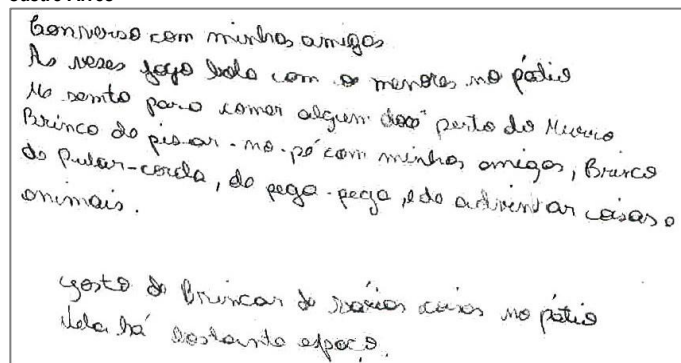 Converso com minhas amigas
As veses jogo bola com os menores no pátio
Me sento para comer algum doce perto do Murro
Brinco de pisar-no-pé com minhas amigas, Brinco
de Pular-corda, de pega-pega, e de adivinhar coisas e
animais.
gosto de Brincar de várias coisas no pátio
dela há bastante espaço.